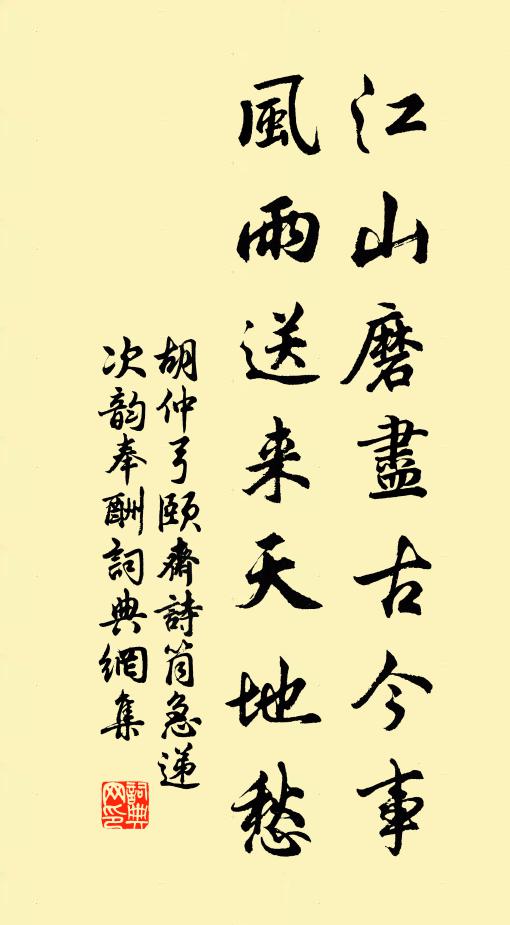 江山磨盡古今事
風雨送来天地愁
胡仲弓頤齋詩筒急递
次韵奉酬詞典網集
詞典网印